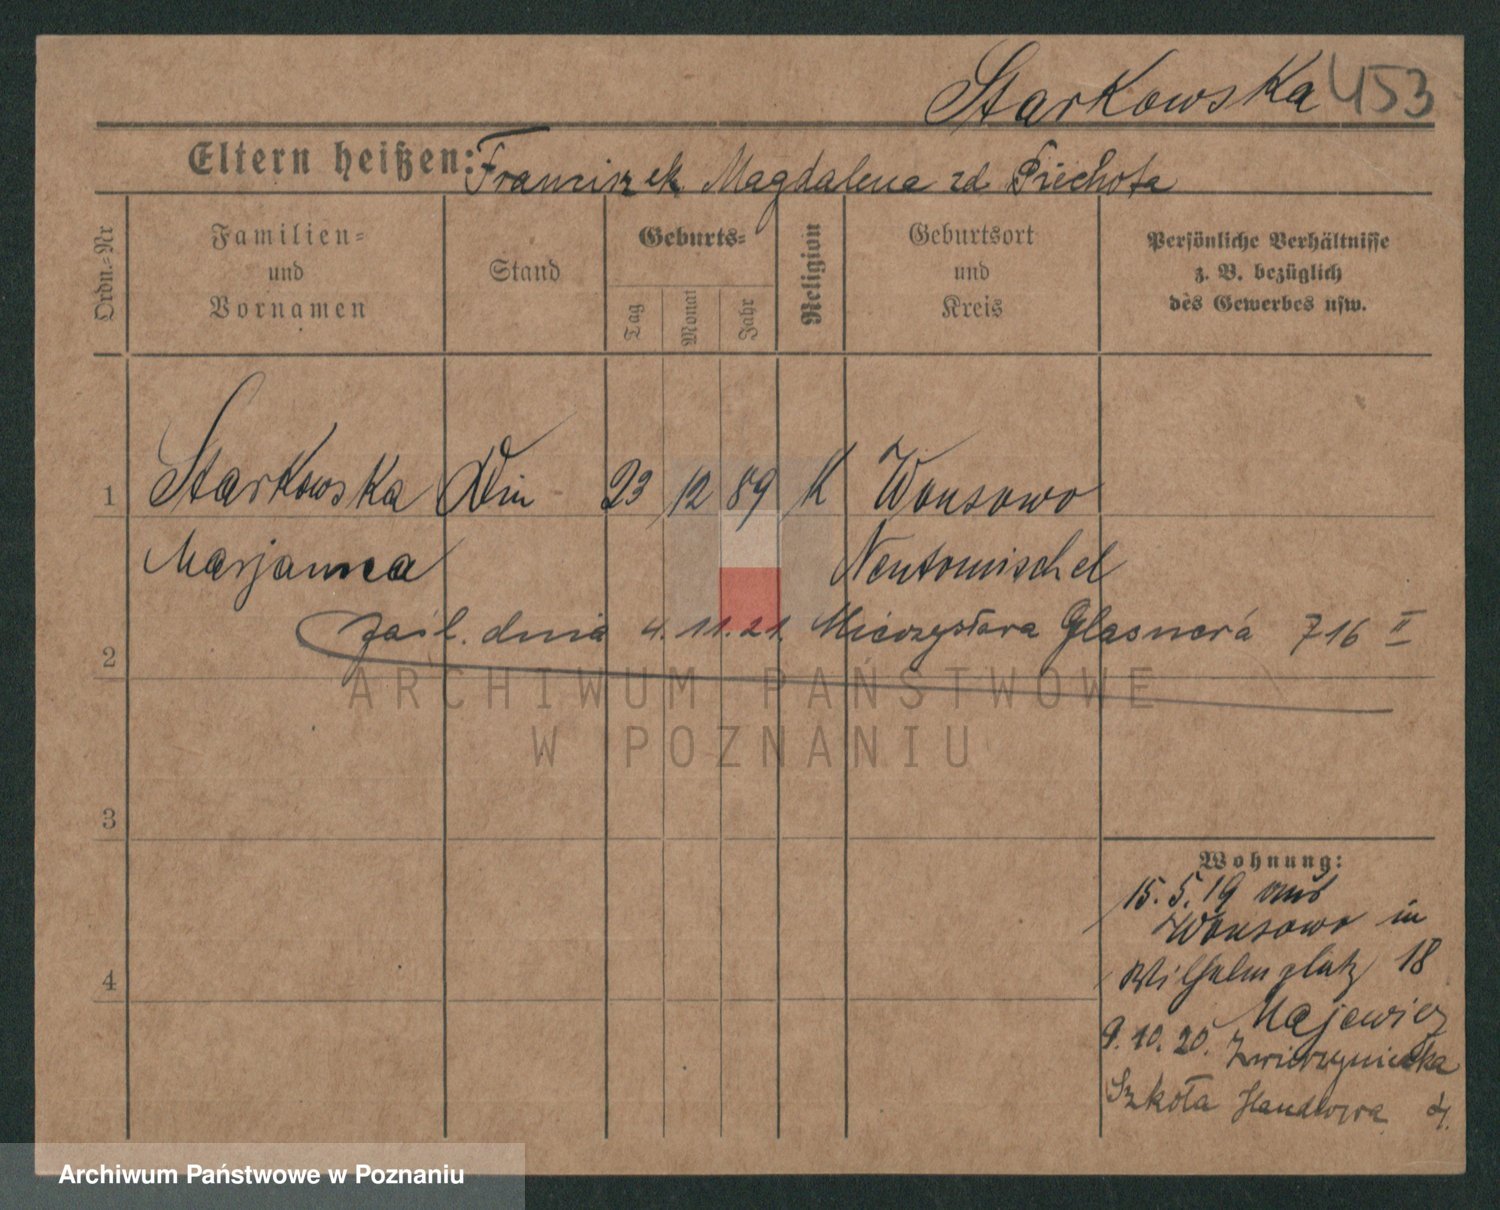 Starkowska 453
Eltern heißen: Franciszek Magdalena zd Piechota
Ordn.-Nr
Familien- und Vornamen
Stand
Geburts-
Tag
Monat
Jahr
Religion
Geburtsort und Kreis
Persönliche Verhältnisse
z. B. bezüglich
des Gewerbes usw.
1 Starkowska 23 12 89 K Wonsowo
Marjanna Neutomischel
2 zaśl. dnia 4.11.21. Mieczysława Glasnera 716 II
3
Wohnung:
15.5.19 aus
Wonsowo in
4 Wilhelmplatz 18
Majewicz
9.10.20. Zwierzyniecka
Szkoła Handlowa
ARCHIWUM PAŃSTWOWE
W POZNANIU
Archiwum Państwowe w Poznaniu